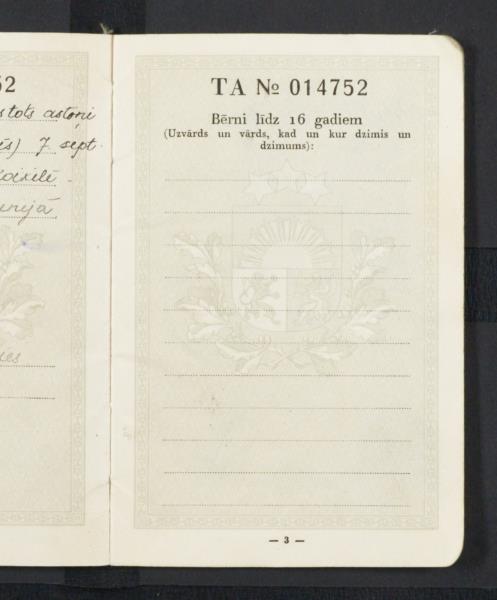 52
astoņi
7. sept.
TA № 014752
Bērni līdz 16 gadiem
(Uzvārds un vārds, kad un kur dzimis un
dzimums):
— 3 —